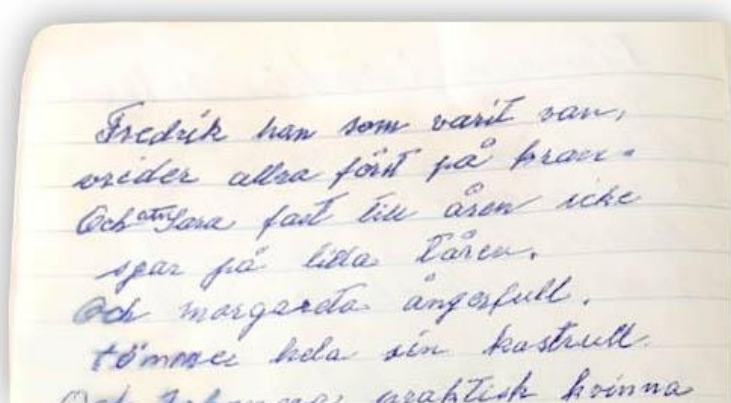 Fredrik han som varit van,
vrider allra först på kran.
Och Sara fast till åren icke
spar på lilla tåren.
Och margareta ångerfull.
tömmer hela sin kastrull.
Och Johanna, praktisk kvinna